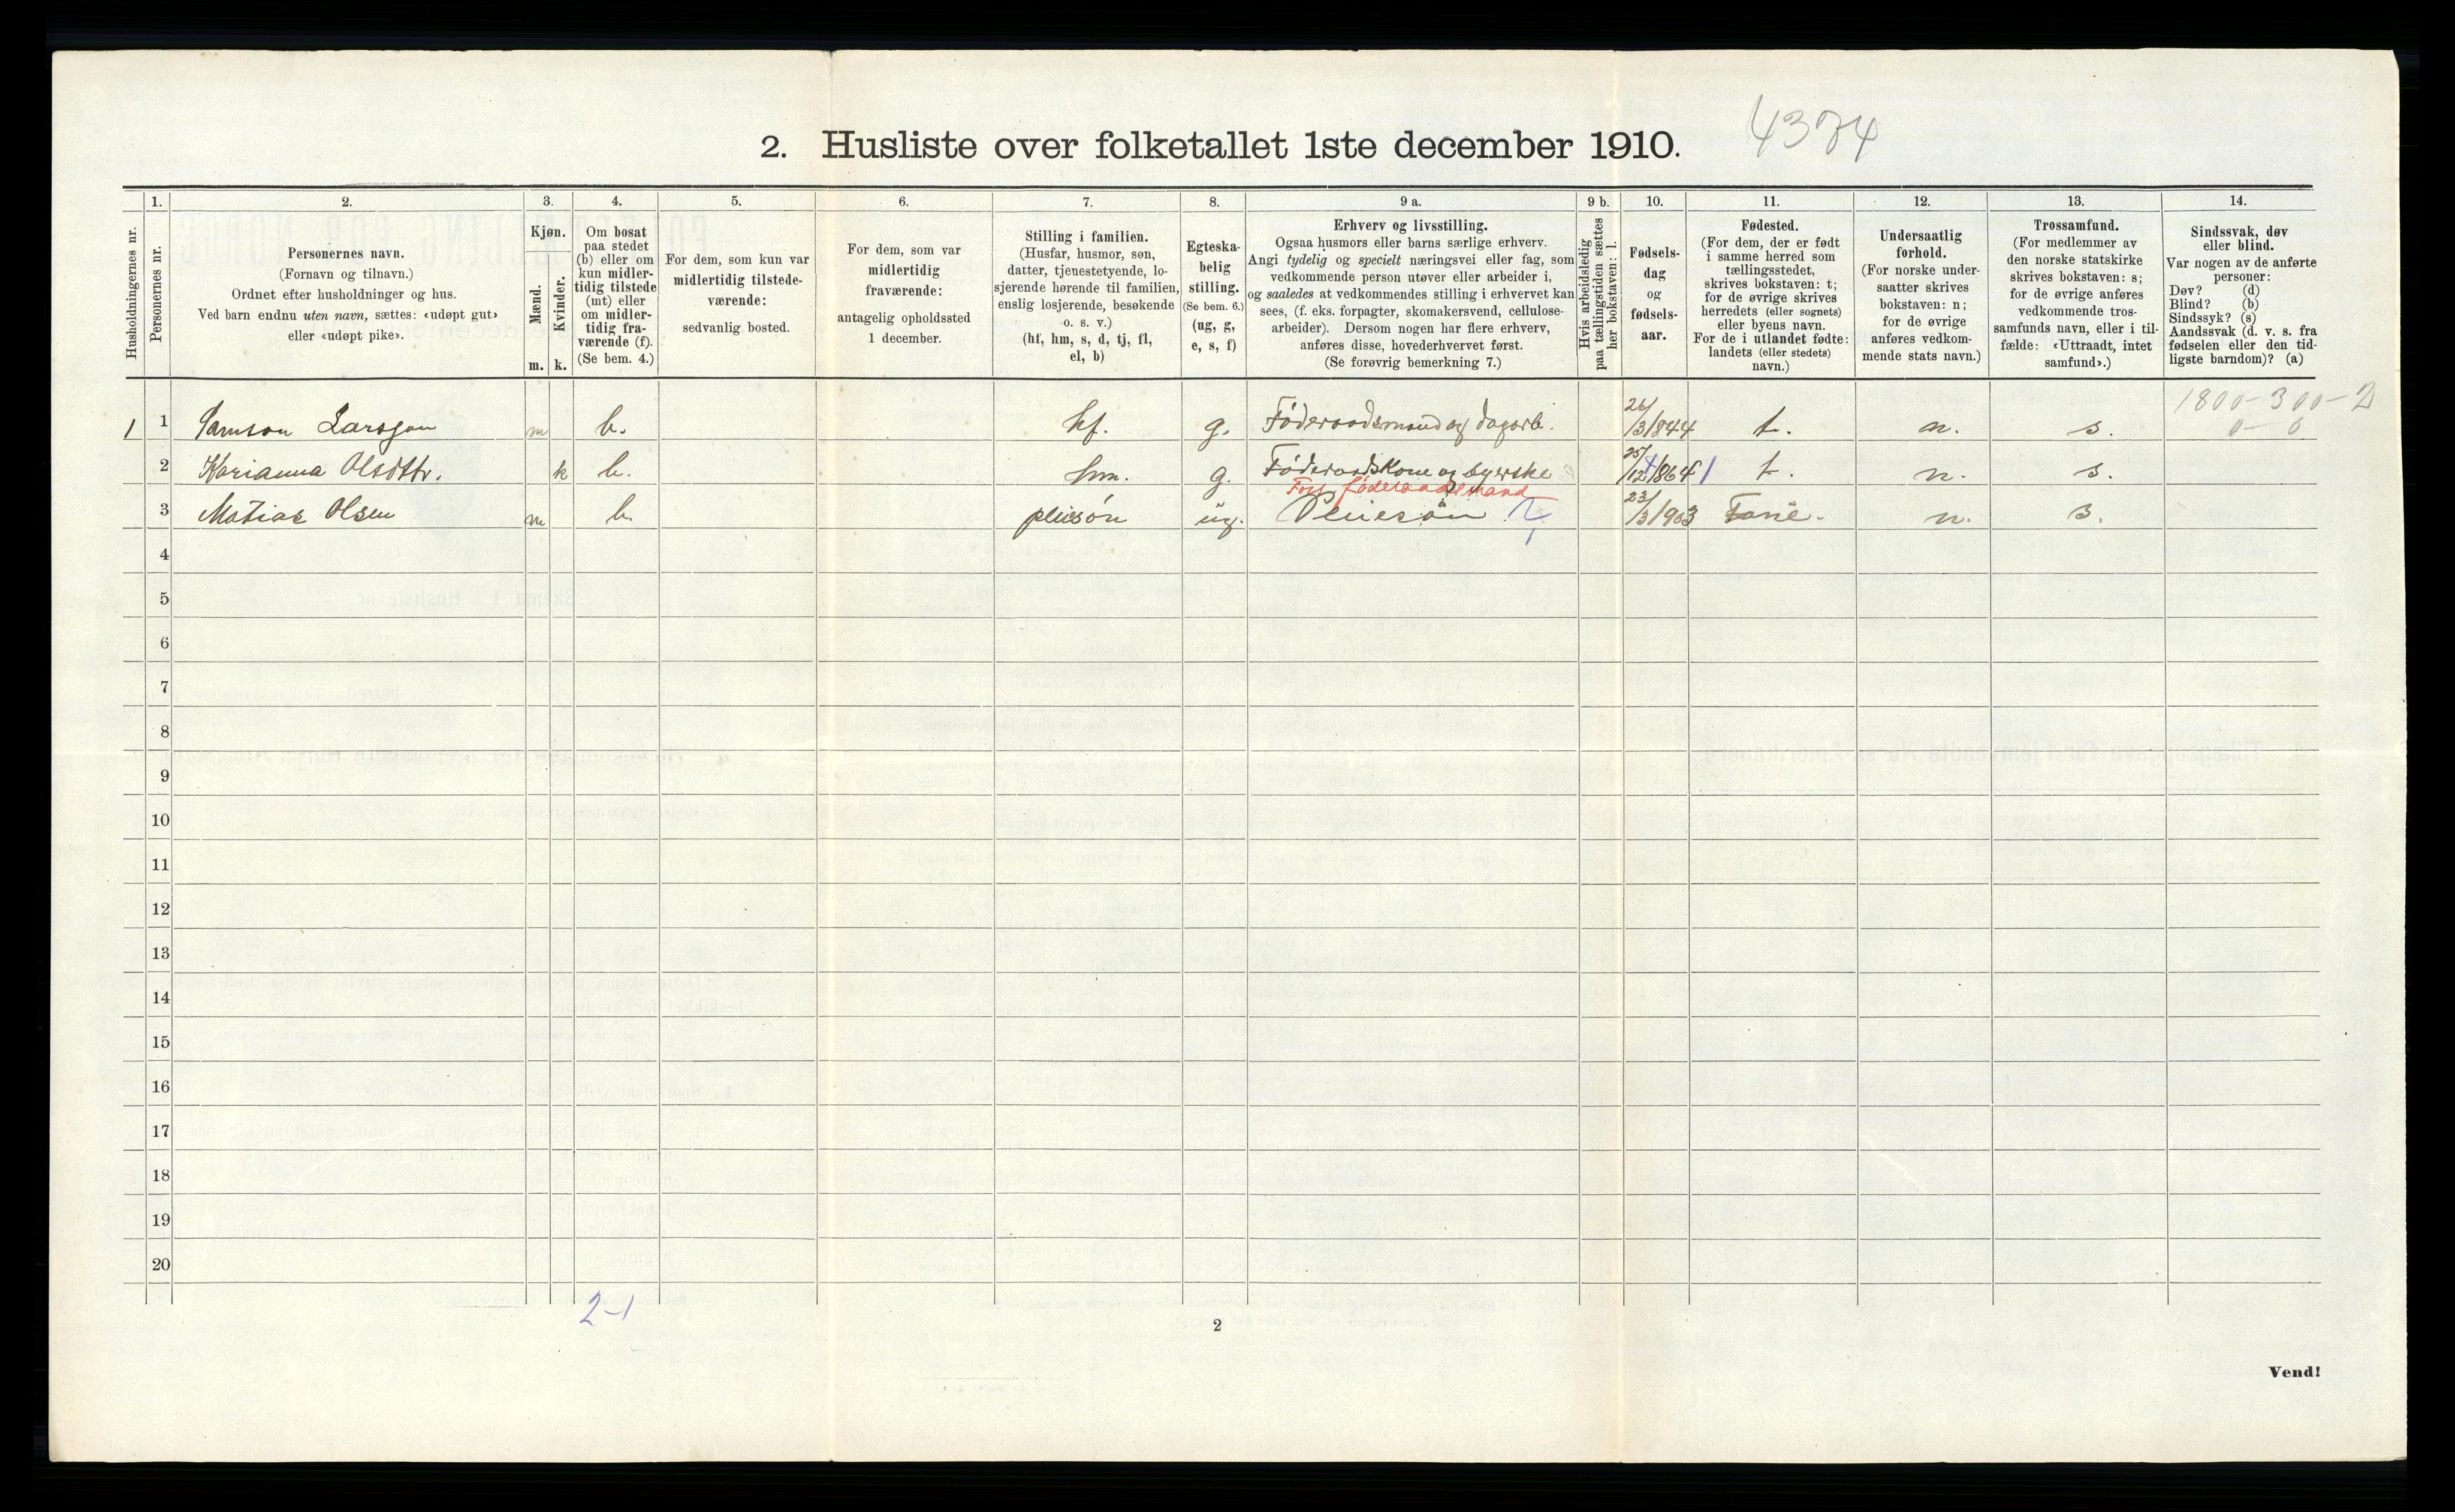 2. Husliste over folketallet 1ste december 1910.
4374
1. 2. 3. 4. 5. 6. 7. 8. 9 a. 9 b. 10. 11. 12. 13. 14.
Husholdningernes nr.
Personernes nr.
Personernes navn.
(Fornavn og tilnavn.)
Ordnet efter husholdninger og hus.
Ved barn endnu uten navn, sættes: «udøpt gut»
eller «udøpt pike».
Kjøn.
Mænd.
Kvinder.
m. k.
Om bosat
paa stedet
(b) eller om
kun midler-
tidig tilstede
(mt) eller
om midler-
tidig fra-
værende (f).
(Se bem. 4.)
For dem, som kun var
midlertidig tilstede-
værende:
sedvanlig bosted.
For dem, som var
midlertidig
fraværende:
antagelig opholdssted
1 december.
Stilling i familien.
(Husfar, husmor, søn,
datter, tjenestetyende, lo-
sjerende hørende til familien,
enslig losjerende, besøkende
o. s. v.)
(hf, hm, s, d, tj, fl,
el, b)
Egteska-
belig
stilling.
(Se bem. 6.)
(ug, g,
e, s, f)
Erhverv og livsstilling.
Ogsaa husmors eller barns særlige erhverv.
Angi tydelig og specielt næringsvei eller fag, som
vedkommende person utøver eller arbeider i,
og saaledes at vedkommendes stilling i erhvervet kan
sees, (f. eks. forpagter, skomakersvend, cellulose-
arbeider). Dersom nogen har flere erhverv,
anføres disse, hovederhvervet først.
(Se forøvrig bemerkning 7.)
Hvis arbeidsledig
paa tællingstiden sættes
her bokstaven: l.
Fødsels-
dag
og
fødsels-
aar.
Fødested.
(For dem, der er født
i samme herred som
tællingsstedet,
skrives bokstaven: t;
for de øvrige skrives
herredets (eller sognets)
eller byens navn.
For de i utlandet fødte:
landets (eller stedets)
navn.)
Undersaatlig
forhold.
(For norske under-
saatter skrives
bokstaven: n;
for de øvrige
anføres vedkom-
mende stats navn.)
Trossamfund.
(For medlemmer av
den norske statskirke
skrives bokstaven: s;
for de øvrige anføres
vedkommende tros-
samfunds navn, eller i til-
fælde: «Uttraadt, intet
samfund».)
Sindssvak, døv
eller blind.
Var nogen av de anførte
personer:
Døv? (d)
Blind? (b)
Sindssyk? (s)
Aandssvak (d. v. s. fra
fødselen eller den tid-
ligste barndom)? (a)
1800-300-2
0-0
1 1 Samson Larsson m b. hf. g. Føderaadsmand og dagarb. 26/3/844 t. n. s.
2 Karianna Olsdttr. k b. hm. g. Føderaadskone og syerske 25/12/864 t. n. s.
Fors. føderaadsmand
3 Matias Olsen m b. pleiesøn ug. Pleiesøn 23/3/903 n. s.
4
5
6
7
8
9
10
11
12
13
14
15
16
17
18
19
20
2-1
2
Vend!